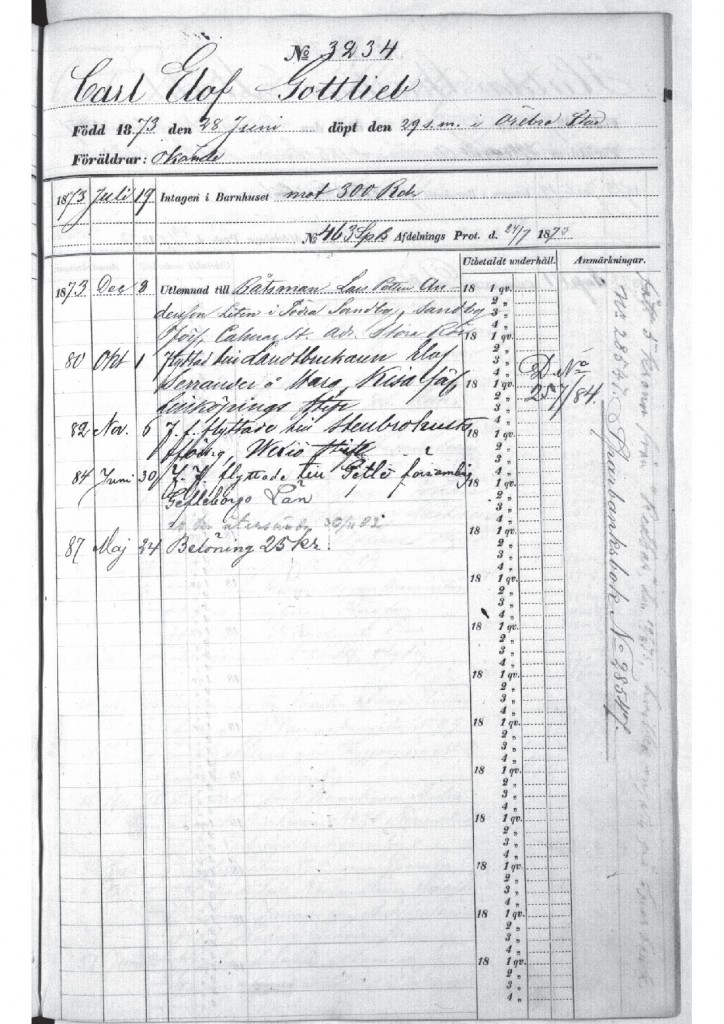 № 3234
Carl Elof Gottlieb
Född 1873 den 28 Juni döpt den 29 s.m. i Örebro Stad
Föräldrar: Okände
1873 Juli 19 Intagen i Barnhuset mot 300 Rdr
№ 463 Spls Afdelnings Prot. d. 24/7 1873
Utbetaldt underhåll. Anmärkningar.
1873 Dec 3 Utlemnad till Båtsman Lars Petter An
dersson Liten i Södra Sandby, Sandby
förs, Calmar St. adr. Stora Rör
80 Okt 1 Flyttad till Landtbrukaren Elof
Serrander å Harg, Kisa
Linköpings Stift
D. №
257/84.
82 Nov. 6 F. f. flyttade till Stenbrohults
förs, Wexiö Stift
84 Juni 30 F. f. flyttade till Gefle församling
Gefleborgs Län
återsändes
87 Maj 24 Belöning 25 kr.
18 1 qv.
2 „
3 „
4 „
18 1 qv.
2 „
3 „
4 „
18 1 qv.
2 „
3 „
4 „
18 1 qv.
2 „
3 „
4 „
18 1 qv.
2 „
3 „
4 „
18 1 qv.
2 „
3 „
4 „
18 1 qv.
2 „
3 „
4 „
18 1 qv.
2 „
3 „
4 „
18 1 qv.
2 „
3 „
4 „
18 1 qv.
2 „
3 „
4 „
18 1 qv.
2 „
3 „
4 „
18 1 qv.
2 „
3 „
4 „
18 1 qv.
2 „
3 „
4 „
18 1 qv.
2 „
3 „
4 „
18 1 qv.
2 „
3 „
4 „
Sparbanksbok № 28547.